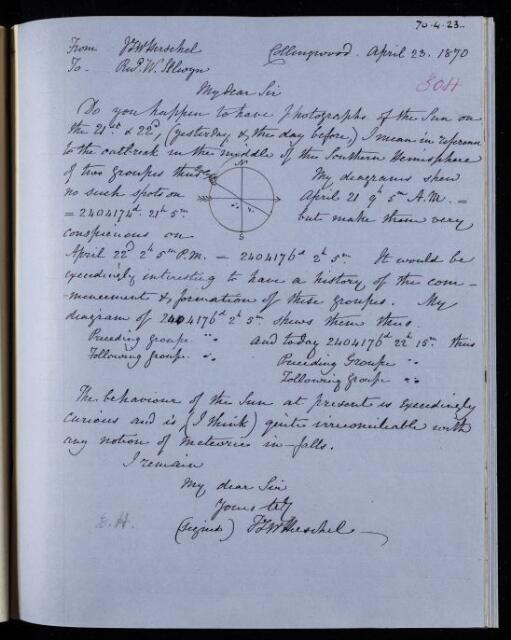 70.4.23.
From JFWHerschel Collingwood. April 23. 1870
To Revd. W. Selwyn
304
My dear Sir
Do you happen to have Photographs of the Sun on
the 21st & 22d, (yesterday & the day before) I mean in reference
to the outbreak in the middle of the Southern Hemisphere
N
of two groupes thus My diagrams shew
no such spots on April 21 9h 5m A.M. =
= 2404174d. 21h 5m. but make them very
S
conspicuous on
April 22d 2h 5m P.M. = 2404176d 2h 5m. It would be
exceedingly interesting to have a history of the com-
-mencement & formation of these groupes. My
diagram of 2404176d 2h 5m. shews them thus.
Preceding groupe and today 2404176d 22h 15m thus
Following groupe Preceding Groupe
Following Groupe
The behaviour of the Sun at present is exceedingly
curious and is (I think) quite irreconcileable with
any notion of meteoric in-falls.
I remain
My dear Sir
Yours try
E.H. (signed) JFWHerschel